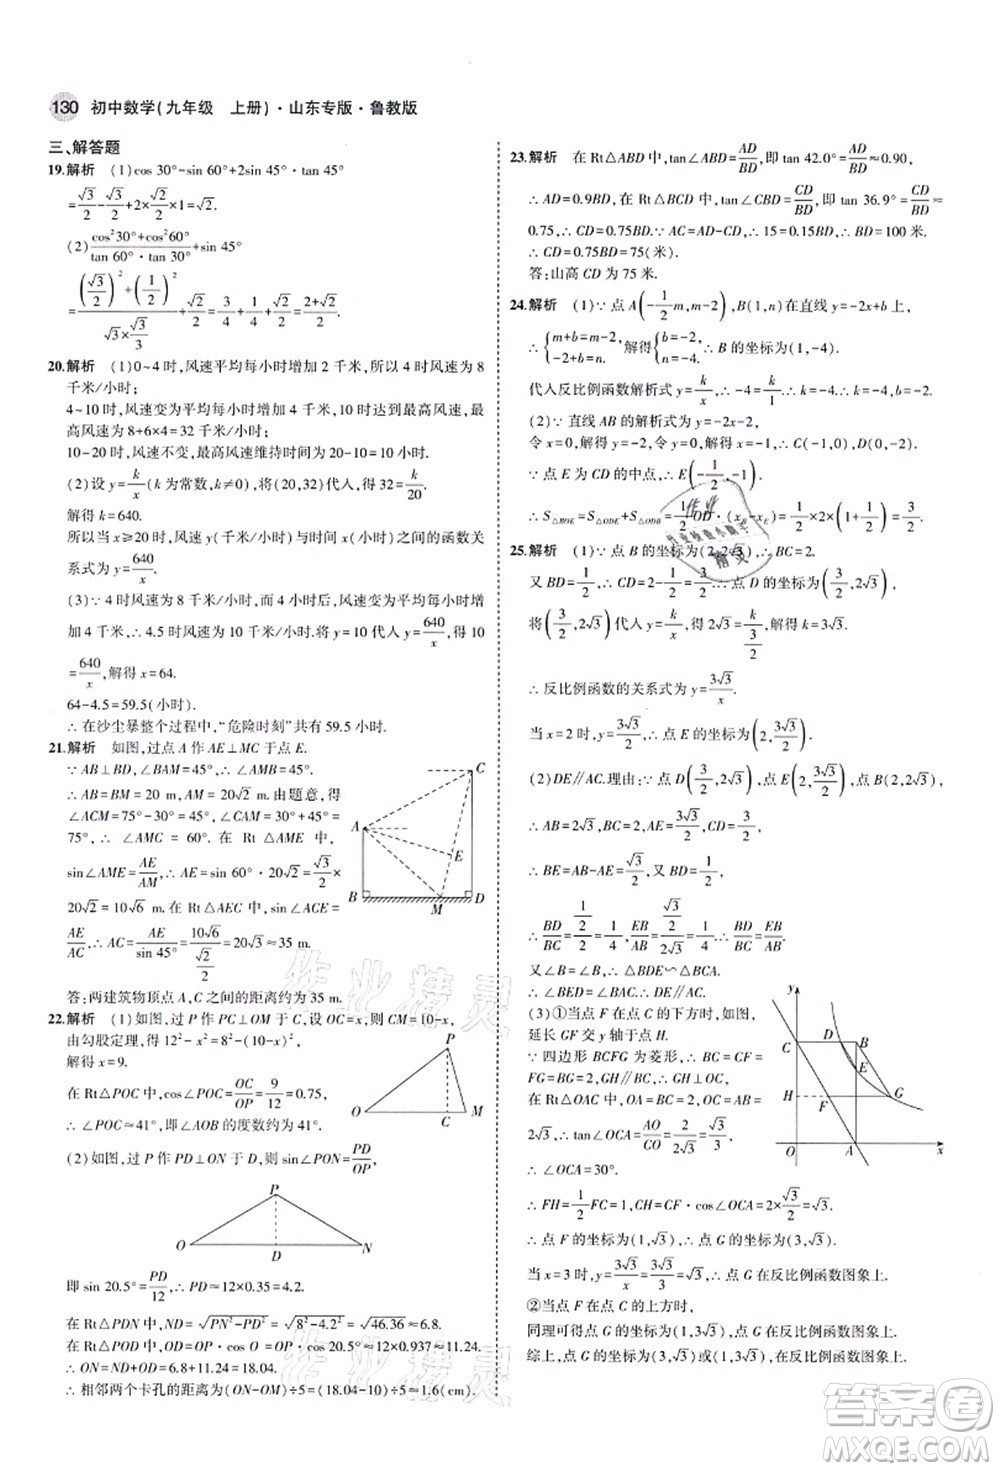 130 初中数学(九年级 上册)·山东专版·鲁教版
三、解答题
19.解析 (1)cos 30°-sin 60°+2sin 45°·tan 45°
=√3/2-√3/2+2×√2/2×1=√2.
(2)(cos²30°+cos²60°)/(tan 60°×tan 30°)+sin 45°
=((√3/2)²+(1/2)²)/(√3×√3/3)+√2/2=3/4+1/4+√2/2=(2+√2)/2.
20.解析 (1)0~4时,风速平均每小时增加2千米,所以4时风速为8
千米/小时;
4~10时,风速变为平均每小时增加4千米,10时达到最高风速,最
高风速为8+6×4=32千米/小时;
10~20时,风速不变,最高风速维持时间为20-10=10小时.
(2)设y=k/x(k为常数,k≠0),将(20,32)代入,得32=k/20.
解得k=640.
所以当x≥20时,风速y(千米/小时)与时间x(小时)之间的函数关
系式为y=640/x.
(3)∵4时风速为8千米/小时,而4小时后,风速平均每小时增加4
千米,∴4.5时风速为10千米/小时,将y=10代入y=640/x,得10
=640/x,解得x=64.
64-4.5=59.5(小时).
∴在沙尘暴整个过程中,“危险时刻”共有59.5小时.
21.解析 如图,过点A作AE⊥MC于点E.
∵AB⊥BD,∠BAM=45°,∴∠AMB=45°.
∴AB=BM=20 m,AM=20√2 m.由题意,得
∠ACM=75°-30°=45°,∠CAM=30°+45°=
75°,∴∠AMC=60°.在Rt△AME中,
sin∠AME=AE/AM,∴AE=sin 60°·20√2=√3/2×
20√2=10√6 m.在Rt△AEC中,sin∠ACE=
AE/AC,∴AC=AE/sin 45°=10√6/(√2/2)=20√3≈35 m.
答:两建筑物顶点A,C之间的距离约为35 m.
C
A
E
B
M
D
22.解析 (1)如图,过P作PC⊥OM于C,设OC=x,则MC=10-x,
由勾股定理,得12²-x²=8²-(10-x)².
解得x=9.
在Rt△POC中,cos∠POC=OC/OP=9/12=0.75.
∴∠POC≈41°,即∠AOB的度数约为41°.
P
O
C
M
(2)如图,过P作PD⊥ON于D,sin∠PON=PD/OP,
P
O
D
N
即sin 20.5°=PD/12,∴PD≈12×0.35=4.2.
在Rt△PDN中,DN=√(PN²-PD²)=√(8²-4.2²)=√46.36≈6.8.
在Rt△POD中,OD=OP·cos∠PON=OP·cos 20.5°≈12×0.937≈11.24.
∴ON=OD+DN=11.24+6.8=18.04.
∴相邻两个卡孔的距离为(ON-OM)÷5=(18.04-10)÷5≈1.6(cm).
23.解析 在Rt△ABD中,tan∠ABD=AD/BD,即tan 42.0°=AD/BD≈0.90,
∴AD=0.9BD,在Rt△BCD中,tan∠CBD=CD/BD,即tan 36.9°=CD/BD≈
0.75,∴CD=0.75BD.∵AC=AD-CD,∴15=0.15BD,∴BD=100米.
∴CD=0.75BD=75(米).
答:山高CD为75米.
24.解析 (1)∵点A(-1/2m,m-2),B(1,n)在直线y=-2x+b上,
∴{m+b=m-2,-2+b=n.解得{b=-2,n=-4.∴B的坐标为(1,-4).
代入反比例函数解析式y=k/x,∴-4=k/1,∴k=-4.
(2)∵直线AB的解析式为y=-2x-2,
令x=0,解得y=-2,令y=0,解得x=-1,∴C(-1,0),D(0,-2).
∵点E为CD的中点,∴E(-1/2,-1).
∴S△BOE=S△ODE+S△ODB=1/2OD·(x_B-x_E)=1/2×2×(1+1/2)=3/2.
25.解析 (1)∵点B的坐标为(2,2√3),∴BC=2.
又BD=1/2,∴CD=2-1/2=3/2.∴点D的坐标为(3/2,2√3).
将(3/2,2√3)代入y=k/x,得2√3=k/(3/2),解得k=3√3.
∴反比例函数的关系式为y=3√3/x.
当x=2时,y=3√3/2,∴点E的坐标为(2,3√3/2).
(2)DE∥AC.理由:∵点D(3/2,2√3),点E(2,3√3/2),点B(2,2√3),
∴AB=2√3,BC=2,AE=3√3/2,CD=3/2,
∴BE=AB-AE=√3/2,BD=BC-CD=1/2,
∴BD/BC=(1/2)/2=1/4,EB/AB=(√3/2)/(2√3)=1/4,∴BD/BC=EB/AB.
又∠B=∠B,∴△BED∽△BAC.
∴∠BED=∠BAC.∴DE∥AC.
(3)①当点F在点C的下方时,如图,
延长GF交y轴于点H.
∵四边形BCFG为菱形,∴BC=CF=
FG=BG=2.
在Rt△OAC中,OA=BC=2,OC=AB=
2√3,∴tan∠OCA=AO/CO=2/(2√3)=√3/3,
∴∠OCA=30°.
y
C
D
B
E
H
F
G
O
A
x
∴FH=1/2FC=1,CH=CF·cos∠OCA=2×√3/2=√3,
∴点F的坐标为(1,√3),∴点G的坐标为(3,√3).
当x=3时,y=3√3/x=√3,∴点G在反比例函数图象上.
②当点F在点C的上方时,
同理可得点G(1,3√3),也在反比例函数图象上.
综上,点G(3,√3)或(1,3√3),都在反比例函数图象上.
作业精灵
作业精灵
答案圈
MXQE.COM